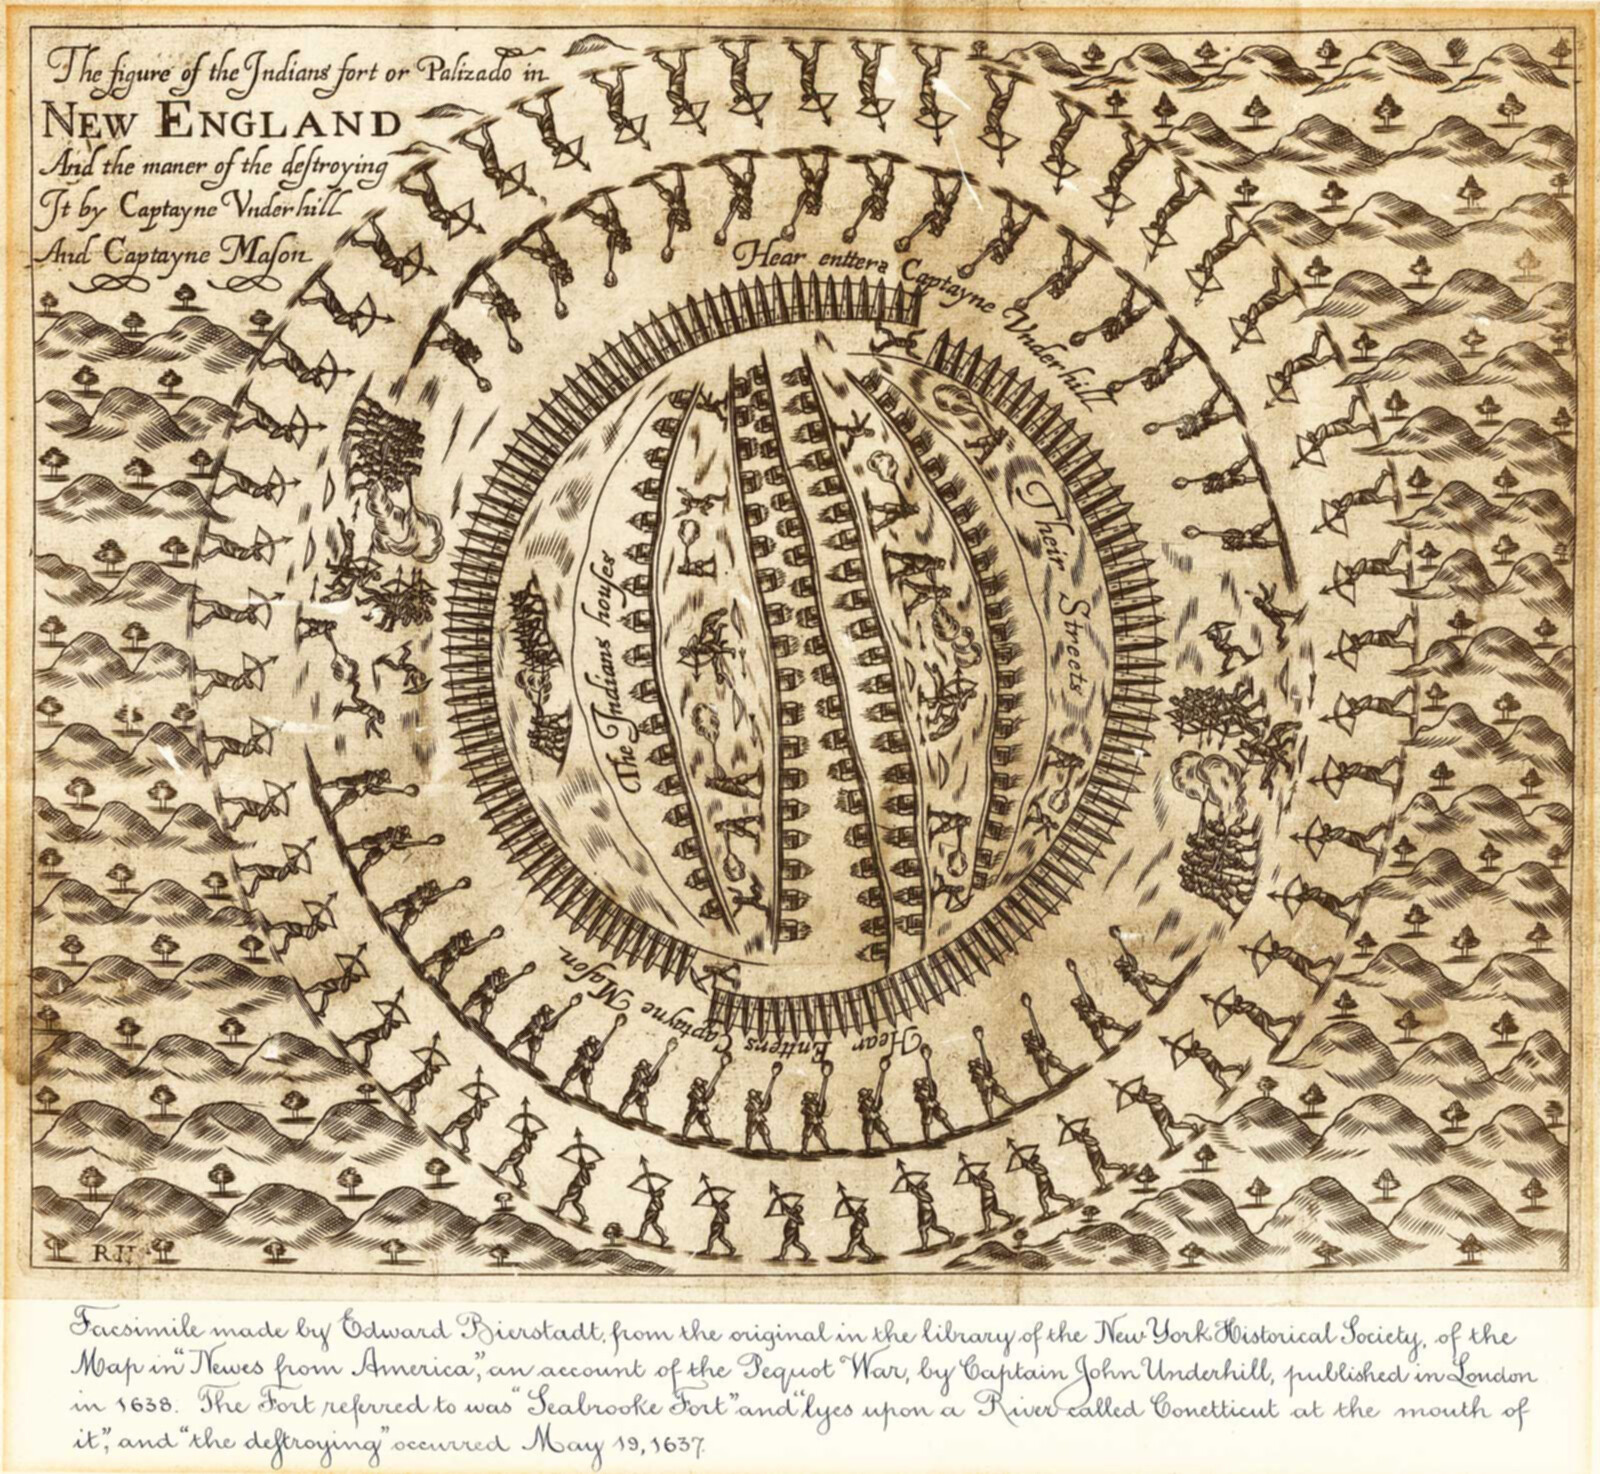 The figure of the Indians fort or Palizado in
NEW ENGLAND
And the maner of the deſtroying
It by Captayne Vnderhill
And Captayne Maſon
Hear entters Captayne Vnderhill
Their Streets
The Indians houſes
Hear Entters Captayne Maſon
RH
Facsimile made by Edward Bierstadt, from the original in the library of the New York Historical Society, of the
Map in "Newes from America", an account of the Pequot War, by Captain John Underhill, published in London
in 1638. The Fort referred to was "Seabrooke Fort" and "lyes upon a River called Conetticut at the mouth of
it", and "the deſtroying" occurred May 19, 1637.